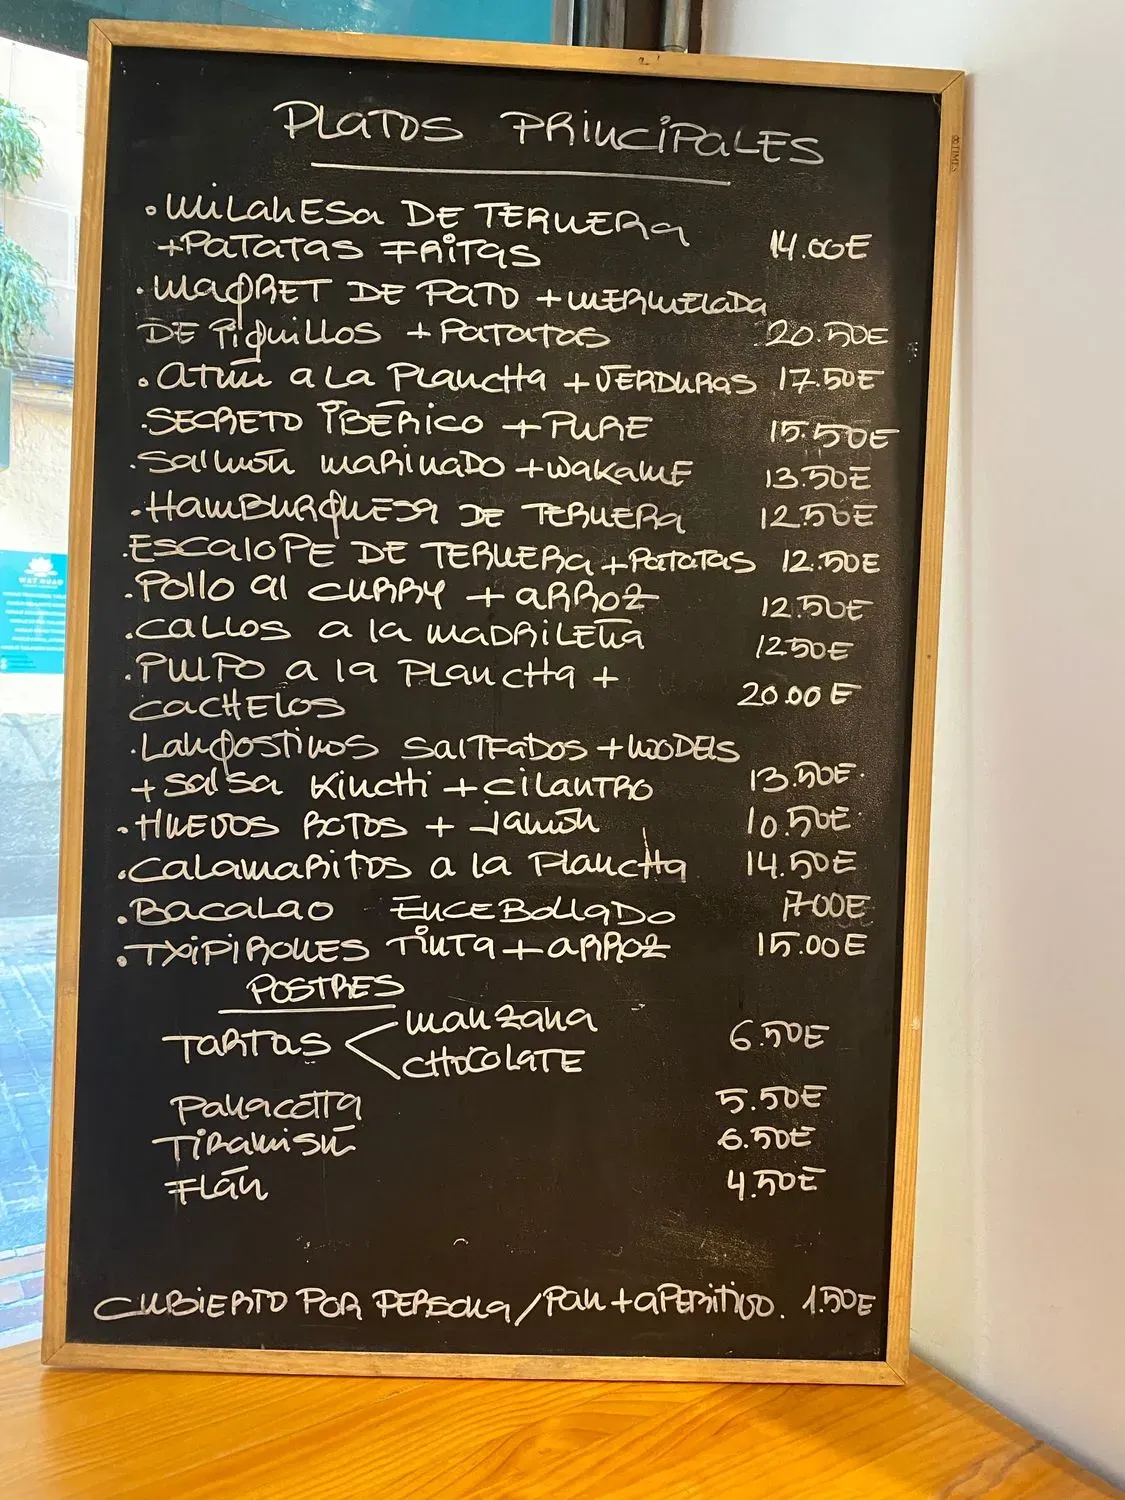 PLATOS PRINCIPALES
. MILANESA DE TERNERA
+PATATAS FRITAS 14.00E
. MAGRET DE PATO + MERMELADA
DE PIQUILLOS + PATATAS 20.50E
. ATÚN A LA PLANCHA + VERDURAS 17.50E
. SECRETO IBÉRICO + PURE 15.50E
. SALMÓN MARINADO + WAKAME 13.50E
. HAMBURGUESA DE TERNERA 12.50E
. ESCALOPE DE TERNERA + PATATAS 12.50E
. POLLO AL CURRY + ARROZ 12.50E
. CALLOS A LA MADRILEÑA 1250E
. PULPO A LA PLANCHA +
CACHELOS 20.00E
. LANGOSTINOS SALTEADOS + NOODELS
+ SALSA KIMCHI + CILANTRO 13.50E
. HUEVOS ROTOS + JAMÓN 10.50E
. CALAMARITOS A LA PLANCHA 14.50E
. BACALAO ENCEBOLLADO 1700E
. TXIPIRONES TINTA + ARROZ 15.00E
POSTRES
TARTAS < MANZANA 6.50E
CHOCOLATE
PANACOTTA 5.50E
TIRAMISÚ 6.50E
FLÁN 4.50E
CUBIERTO POR PERSONA / PAN + APERITIVO. 1.50E
WAT HUAU